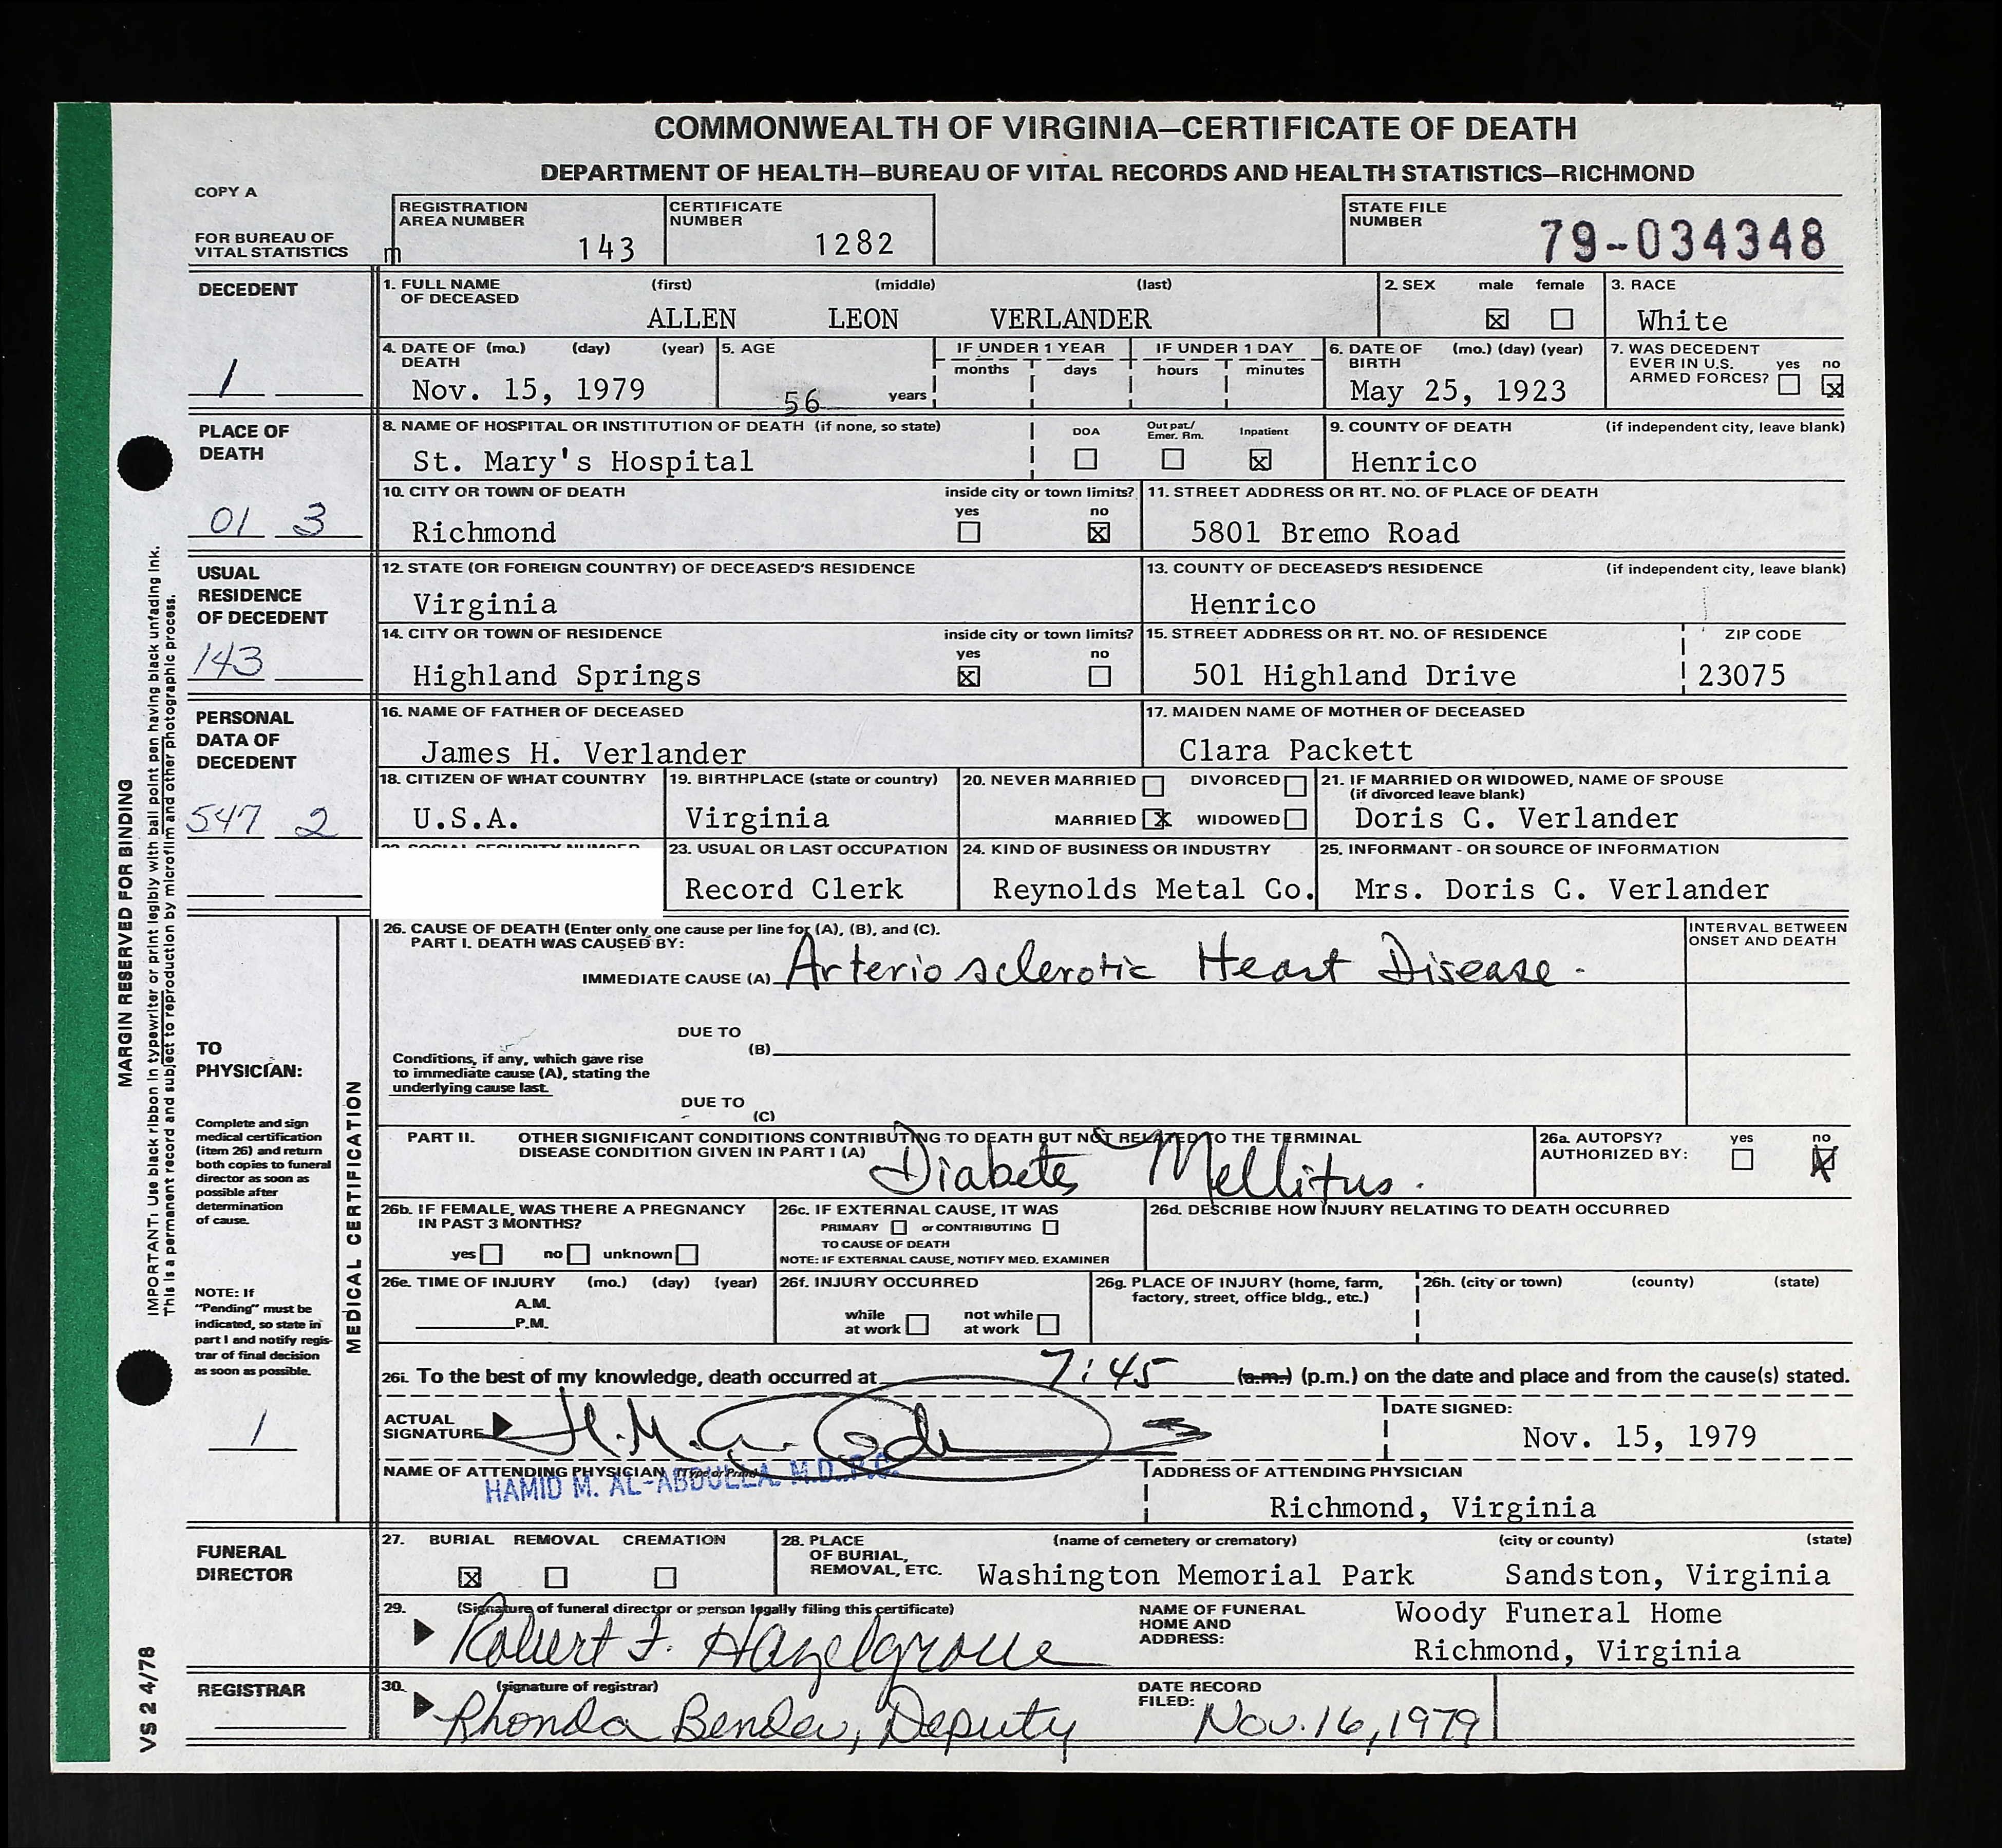 COMMONWEALTH OF VIRGINIA—CERTIFICATE OF DEATH
DEPARTMENT OF HEALTH—BUREAU OF VITAL RECORDS AND HEALTH STATISTICS—RICHMOND
COPY A
FOR BUREAU OF VITAL STATISTICS
m
REGISTRATION AREA NUMBER 143
CERTIFICATE NUMBER 1282
STATE FILE NUMBER 79-034348
DECEDENT
1
1. FULL NAME OF DECEASED (first) (middle) (last)
ALLEN LEON VERLANDER
2. SEX male female
x
3. RACE
White
4. DATE OF DEATH (mo.) (day) (year)
Nov. 15, 1979
5. AGE
56 years
IF UNDER 1 YEAR
months days
IF UNDER 1 DAY
hours minutes
6. DATE OF BIRTH (mo.) (day) (year)
May 25, 1923
7. WAS DECEDENT EVER IN U.S. ARMED FORCES? yes no
x
PLACE OF DEATH
01 3
8. NAME OF HOSPITAL OR INSTITUTION OF DEATH (if none, so state)
St. Mary's Hospital
DOA Out pat./Emer. Rm. Inpatient
x
9. COUNTY OF DEATH (if independent city, leave blank)
Henrico
10. CITY OR TOWN OF DEATH inside city or town limits?
yes no
Richmond x
11. STREET ADDRESS OR RT. NO. OF PLACE OF DEATH
5801 Bremo Road
USUAL RESIDENCE OF DECEDENT
143
12. STATE (OR FOREIGN COUNTRY) OF DECEASED'S RESIDENCE
Virginia
13. COUNTY OF DECEASED'S RESIDENCE (if independent city, leave blank)
Henrico
14. CITY OR TOWN OF RESIDENCE inside city or town limits?
yes no
Highland Springs x
15. STREET ADDRESS OR RT. NO. OF RESIDENCE ZIP CODE
501 Highland Drive 23075
PERSONAL DATA OF DECEDENT
547 2
16. NAME OF FATHER OF DECEASED
James H. Verlander
17. MAIDEN NAME OF MOTHER OF DECEASED
Clara Packett
18. CITIZEN OF WHAT COUNTRY
U.S.A.
19. BIRTHPLACE (state or country)
Virginia
20. NEVER MARRIED DIVORCED
MARRIED x WIDOWED
21. IF MARRIED OR WIDOWED, NAME OF SPOUSE
(if divorced leave blank)
Doris C. Verlander
23. USUAL OR LAST OCCUPATION
Record Clerk
24. KIND OF BUSINESS OR INDUSTRY
Reynolds Metal Co.
25. INFORMANT - OR SOURCE OF INFORMATION
Mrs. Doris C. Verlander
MARGIN RESERVED FOR BINDING
IMPORTANT: Use black ribbon in typewriter or print legibly with ball point pen having black unfading ink.
This is a permanent record and subject to reproduction by microfilm and other photographic process.
VS 2 4/78
TO PHYSICIAN:
Complete and sign medical certification (item 26) and return both copies to funeral director as soon as possible after determination of cause.
NOTE: If "Pending" must be indicated, so state in part I and notify registrar of final decision as soon as possible.
1
MEDICAL CERTIFICATION
26. CAUSE OF DEATH (Enter only one cause per line for (A), (B), and (C).
PART I. DEATH WAS CAUSED BY:
INTERVAL BETWEEN ONSET AND DEATH
IMMEDIATE CAUSE (A) Arteriosclerotic Heart Disease.
DUE TO
(B)
Conditions, if any, which gave rise to immediate cause (A), stating the underlying cause last.
DUE TO
(C)
PART II. OTHER SIGNIFICANT CONDITIONS CONTRIBUTING TO DEATH BUT NOT RELATED TO THE TERMINAL
DISEASE CONDITION GIVEN IN PART I (A) Diabetes Mellitus.
26a. AUTOPSY? yes no
AUTHORIZED BY: x
26b. IF FEMALE, WAS THERE A PREGNANCY IN PAST 3 MONTHS?
yes no unknown
26c. IF EXTERNAL CAUSE, IT WAS
PRIMARY or CONTRIBUTING
TO CAUSE OF DEATH
NOTE: IF EXTERNAL CAUSE, NOTIFY MED. EXAMINER
26d. DESCRIBE HOW INJURY RELATING TO DEATH OCCURRED
26e. TIME OF INJURY (mo.) (day) (year)
A.M.
P.M.
26f. INJURY OCCURRED
while at work not while at work
26g. PLACE OF INJURY (home, farm, factory, street, office bldg., etc.)
26h. (city or town) (county) (state)
26i. To the best of my knowledge, death occurred at 7:45 (a.m.) (p.m.) on the date and place and from the cause(s) stated.
ACTUAL SIGNATURE
DATE SIGNED:
Nov. 15, 1979
NAME OF ATTENDING PHYSICIAN (Type or Print)
HAMID M. AL-ABDULLA. M.D..P.C.
ADDRESS OF ATTENDING PHYSICIAN
Richmond, Virginia
FUNERAL DIRECTOR
27. BURIAL REMOVAL CREMATION
x
28. PLACE OF BURIAL, REMOVAL, ETC. (name of cemetery or crematory) (city or county) (state)
Washington Memorial Park Sandston, Virginia
29. (Signature of funeral director or person legally filing this certificate)
Robert F. Hazelgrove
NAME OF FUNERAL HOME AND ADDRESS:
Woody Funeral Home
Richmond, Virginia
REGISTRAR
30. (signature of registrar)
Rhonda Bender, Deputy
DATE RECORD FILED: Nov. 16, 1979